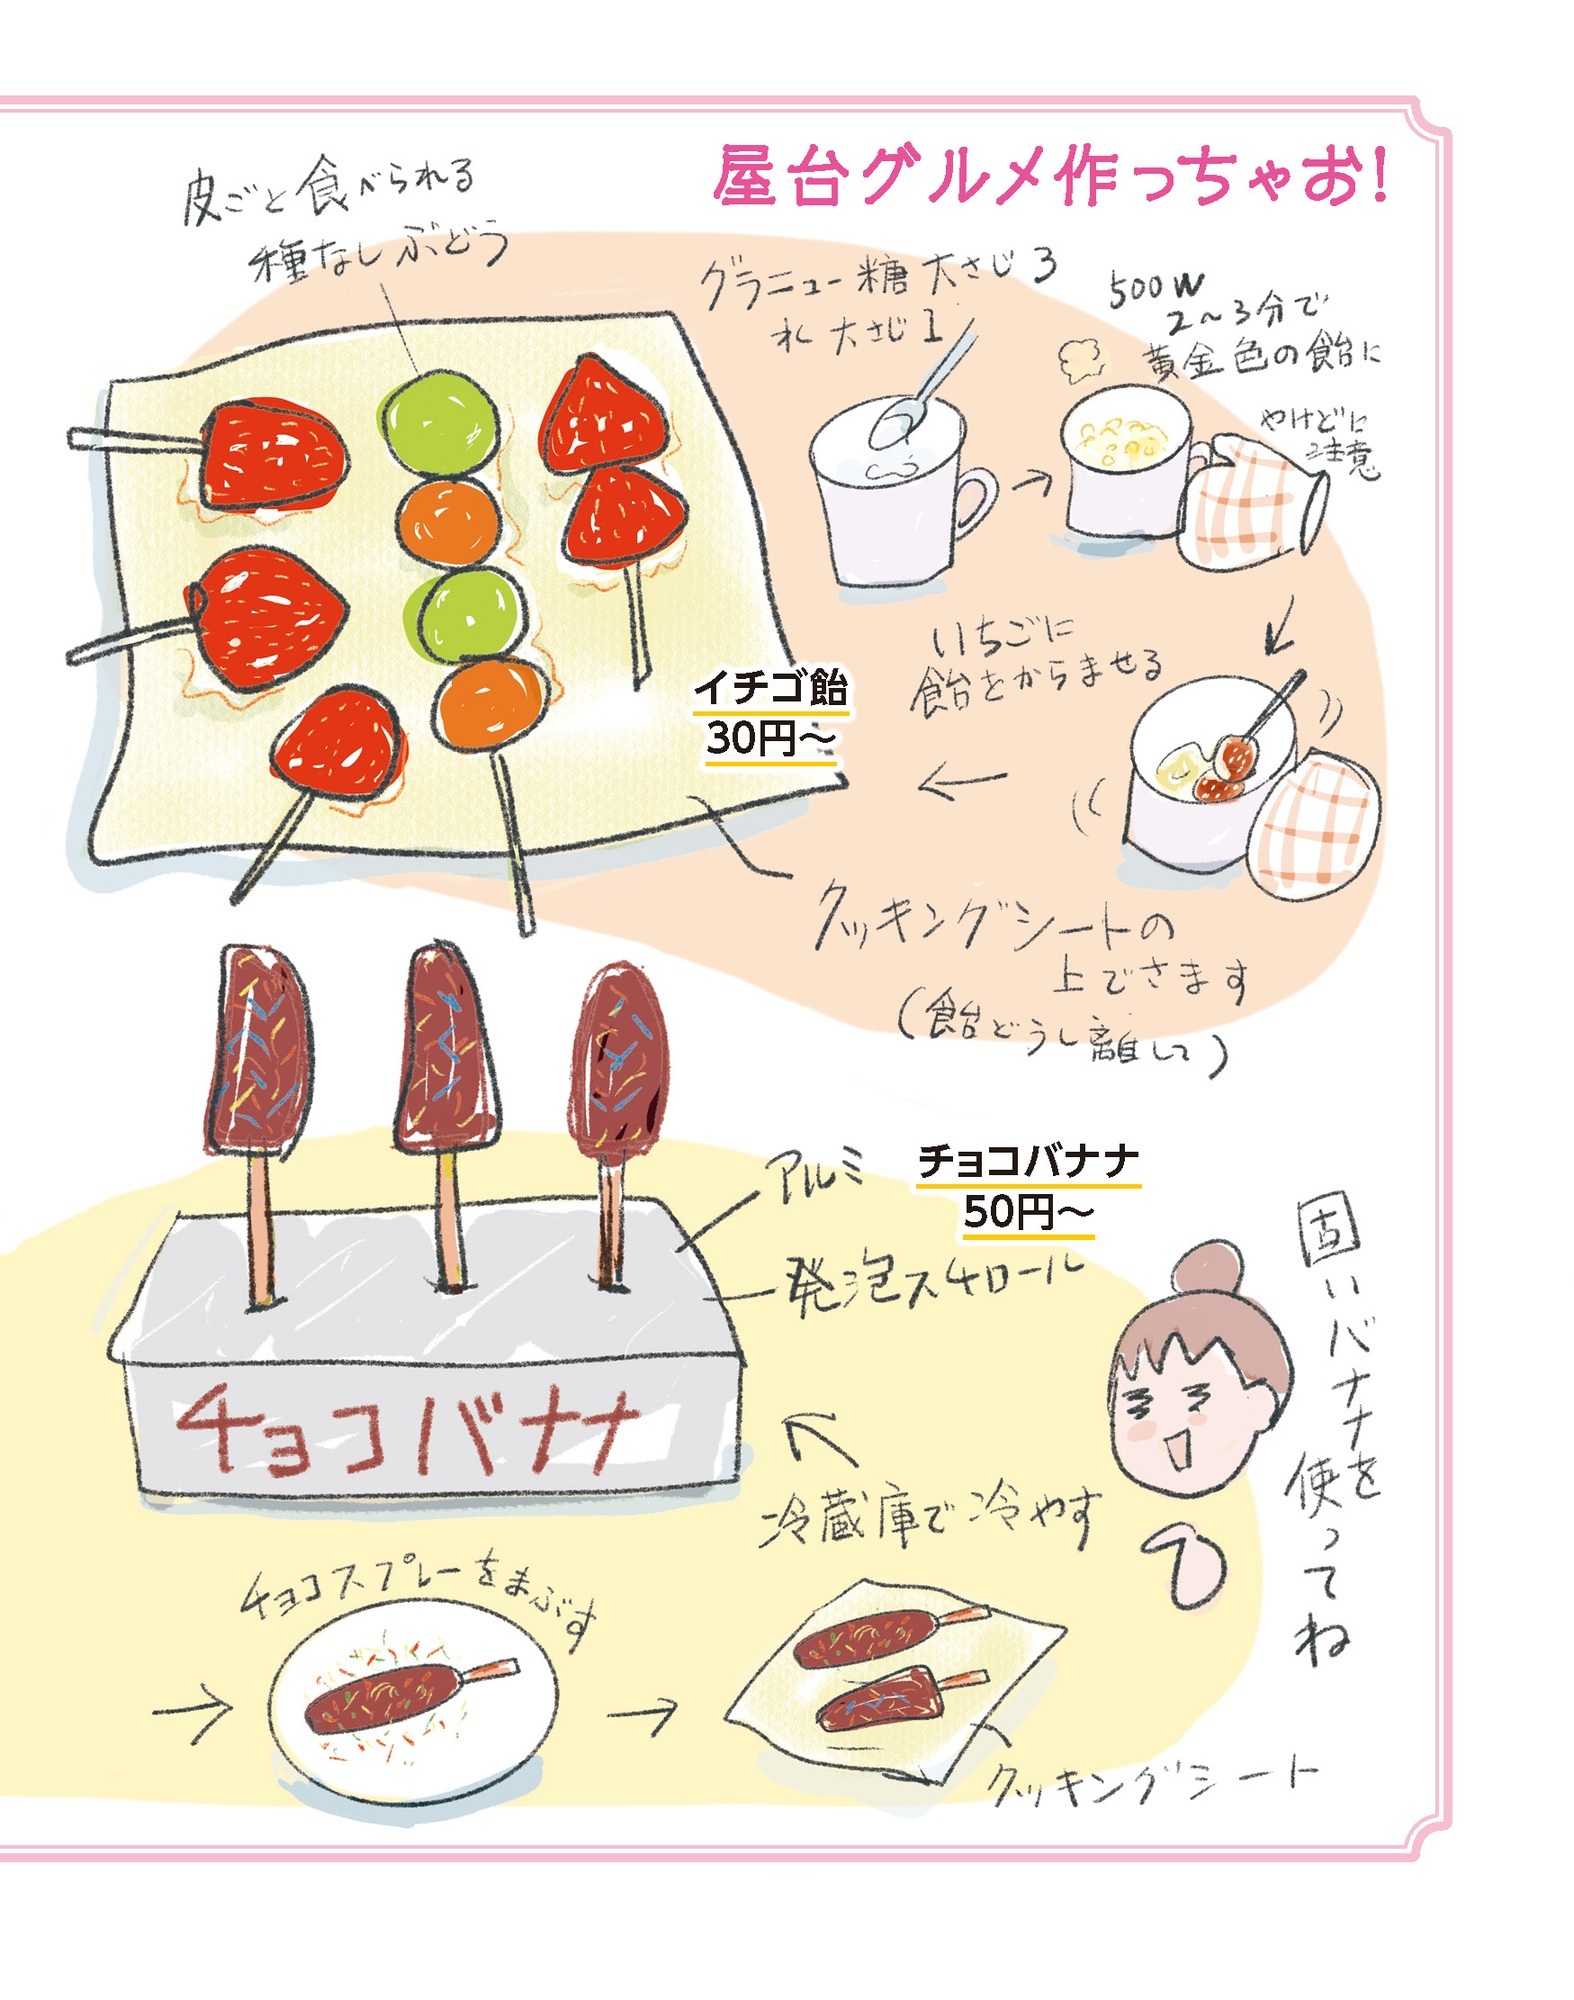 屋台グルメ作っちゃお!
皮ごと食べられる
種なしぶどう
グラニュー糖 大さじ3
水 大さじ1
500W
2〜3分で
黄金色の飴に
やけどに
注意
いちごに
飴をからませる
イチゴ飴
30円〜
クッキングシートの
上でさます
(飴どうし離して)
アルミ
チョコバナナ
50円〜
発泡スチロール
固いバナナを
使ってね
チョコバナナ
冷蔵庫で冷やす
チョコスプレーをまぶす
クッキングシート